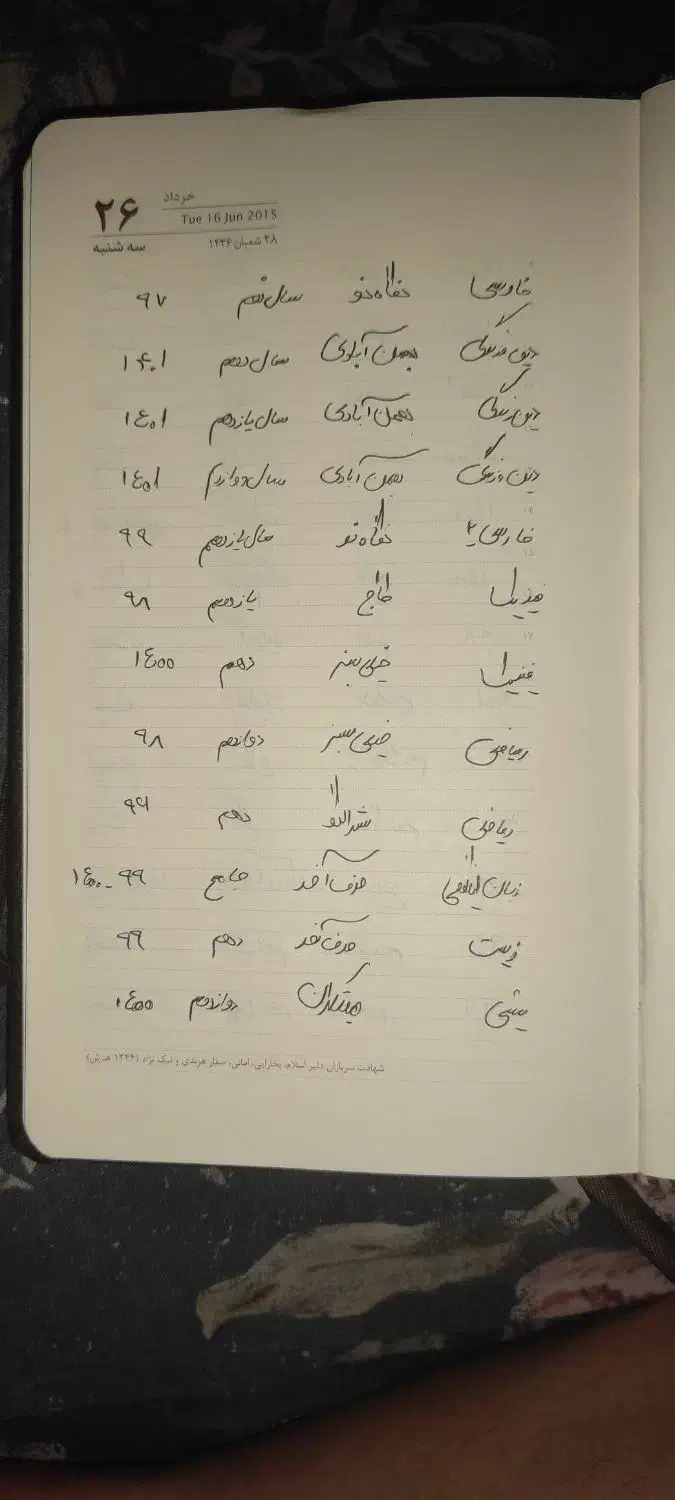 خرداد
۲۶
Tue 16 Jun 2015
سه شنبه
۲۸ شعبان ۱۴۳۶
فارسی نگاه نو سال نهم ۹۷
دین و زندگی بهمن آبادی سال دهم ۱۴۰۱
دین و زندگی بهمن آبادی سال یازدهم ۱۴۰۱
دین و زندگی بهمن آبادی سال دوازدهم ۱۴۰۱
فارسی ۲ نگاه نو سال یازدهم ۹۹
فیزیک کاج یازدهم ۹۸
شیمی خیلی سبز دهم ۱۴۰۰
ریاضی خیلی سبز دوازدهم ۹۸
ریاضی دهم ۹۶
زبان انگلیسی حرف آخر جامع ۹۹ - ۱۴۰۰
زیست حرف آخر دهم ۹۹
شیمی مبتکران دوازدهم ۱۴۰۰
شهادت سربازان دلیر اسلام، بخارایی، امانی، صفار هرندی و نیک نژاد (۱۳۴۴ هـ.ش)